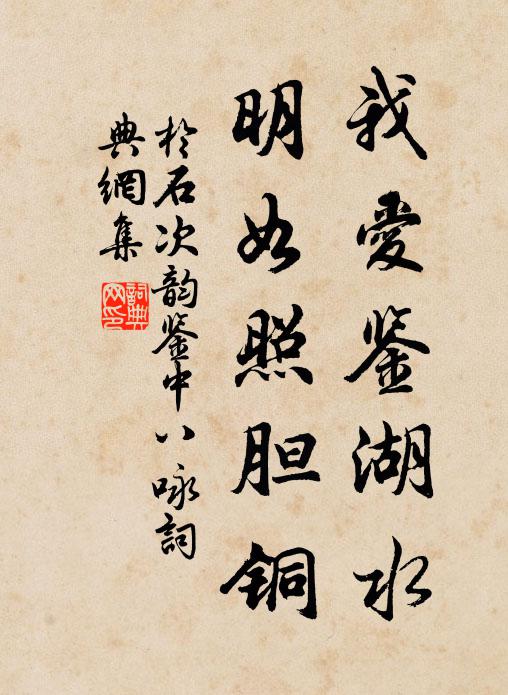 我愛鉴湖水
明如照胆铜
於石次韵鉴中八詠詞
典網集
詞典网印